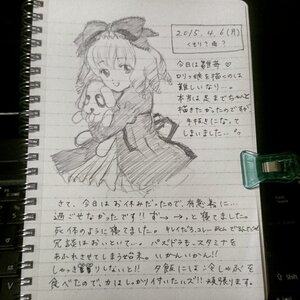 2015.4.6(月)
くもり?雨?
今日は雛苺♡
ロリっ娘を描くのは
難しいなり…。
本当は足までちゃんと
描きたかったのですが
手抜きになって
しまいました…
さて、今日はお休みだったので、有意義に
過ごせなかったです!!ず→→っと寝てました。
死体のように寝てました。
冗談はおいといて…。パズドラも、スタミナを
あふれさせてしまう始末。いかんいかん!!
しゃっきりしないと!!夕飯には冷しゃぶを
食べたので、力はしっかりすいたいズ!!頑張ります。